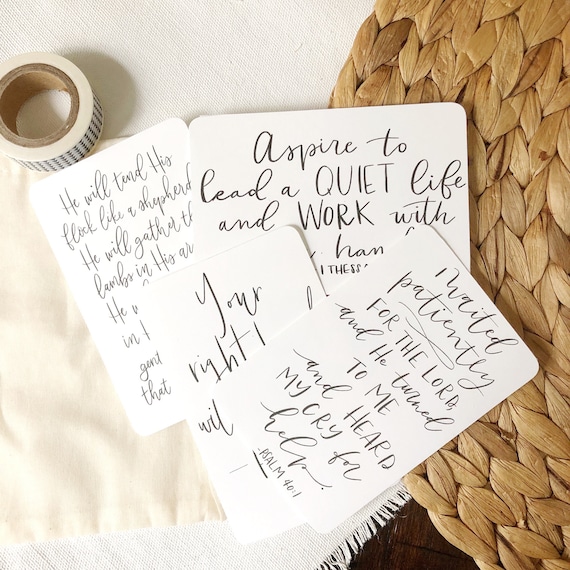 He will tend His
flock like a shepherd
He will gather th
lambs in His ar
He
in
gent
that
Aspire to
lead a QUIET life
and WORK with
han
1 THESS
Your
right
wil
I Waited
patiently
FOR THE LORD,
and He turned
TO ME
and HEARD
MY CRY for
help.
PSALM 40:1